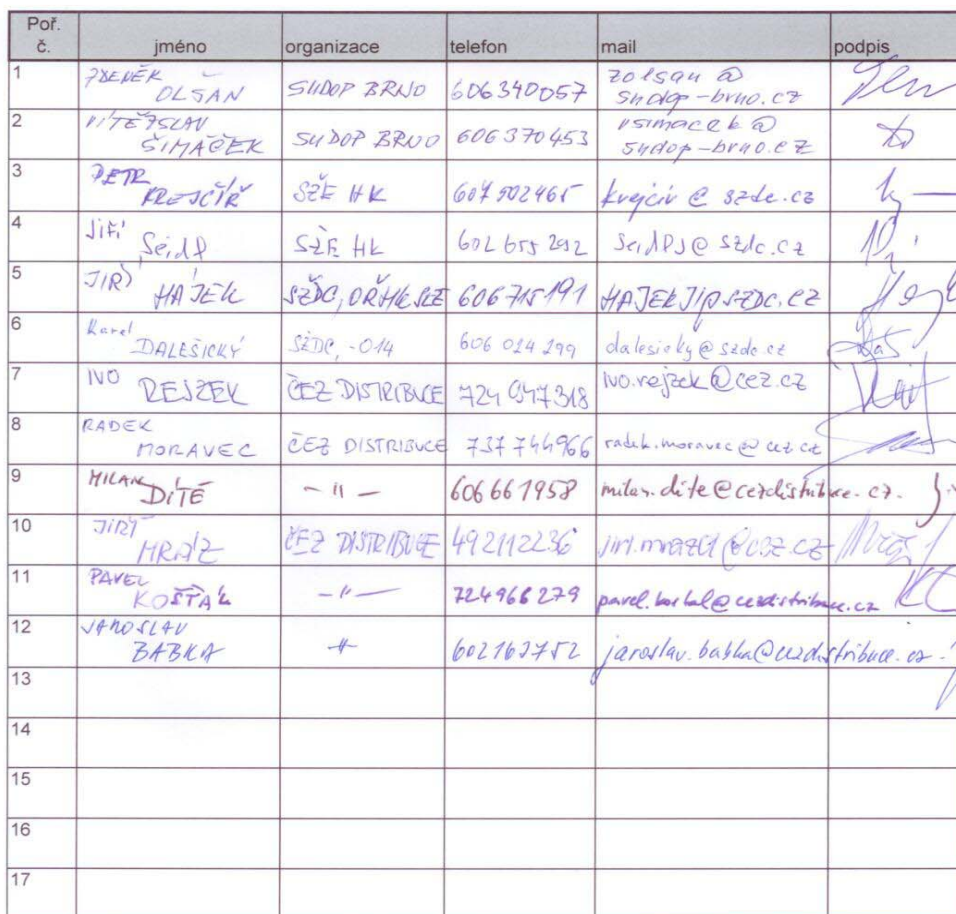 Poř. č. jméno organizace telefon mail podpis
1 ZDENĚK OLŠAN SUDOP BRNO 606340057 zolsan@sudop-brno.cz
2 VÍTĚZSLAV ŠIMÁČEK SUDOP BRNO 606370453 vsimacek@sudop-brno.cz
3 PETR KREJČÍŘ SŽE HK 607502465 krejcir@szdc.cz
4 JIŘÍ Seidl SŽE HK 602 655 292 SeidlJ@szdc.cz
5 JIŘÍ HÁJEK SŽDC, OŘ HK SEE 606715191 HAJEKJI@SZDC.CZ
6 Karel DALEŠICKÝ SŽDC, -O14 606 024 299 dalesicky@szdc.cz
7 IVO REJZEK ČEZ DISTRIBUCE 724 047 318 ivo.rejzek@cez.cz
8 RADEK MORAVEC ČEZ DISTRIBUCE 737 744966 radek.moravec@cez.cz
9 MILAN DÍTĚ - 11 - 606 661958 milan.dite@cezdistribuce.cz.
10 JIŘÍ MRÁZ ČEZ DISTRIBUCE 492112236
11 PAVEL KOŠŤÁL - 11 - 724966279 pavel.kostal@cezdistribuce.cz
12 JAROSLAV BABKA 602162752 jaroslav.babka@cezdistribuce.cz
13
14
15
16
17